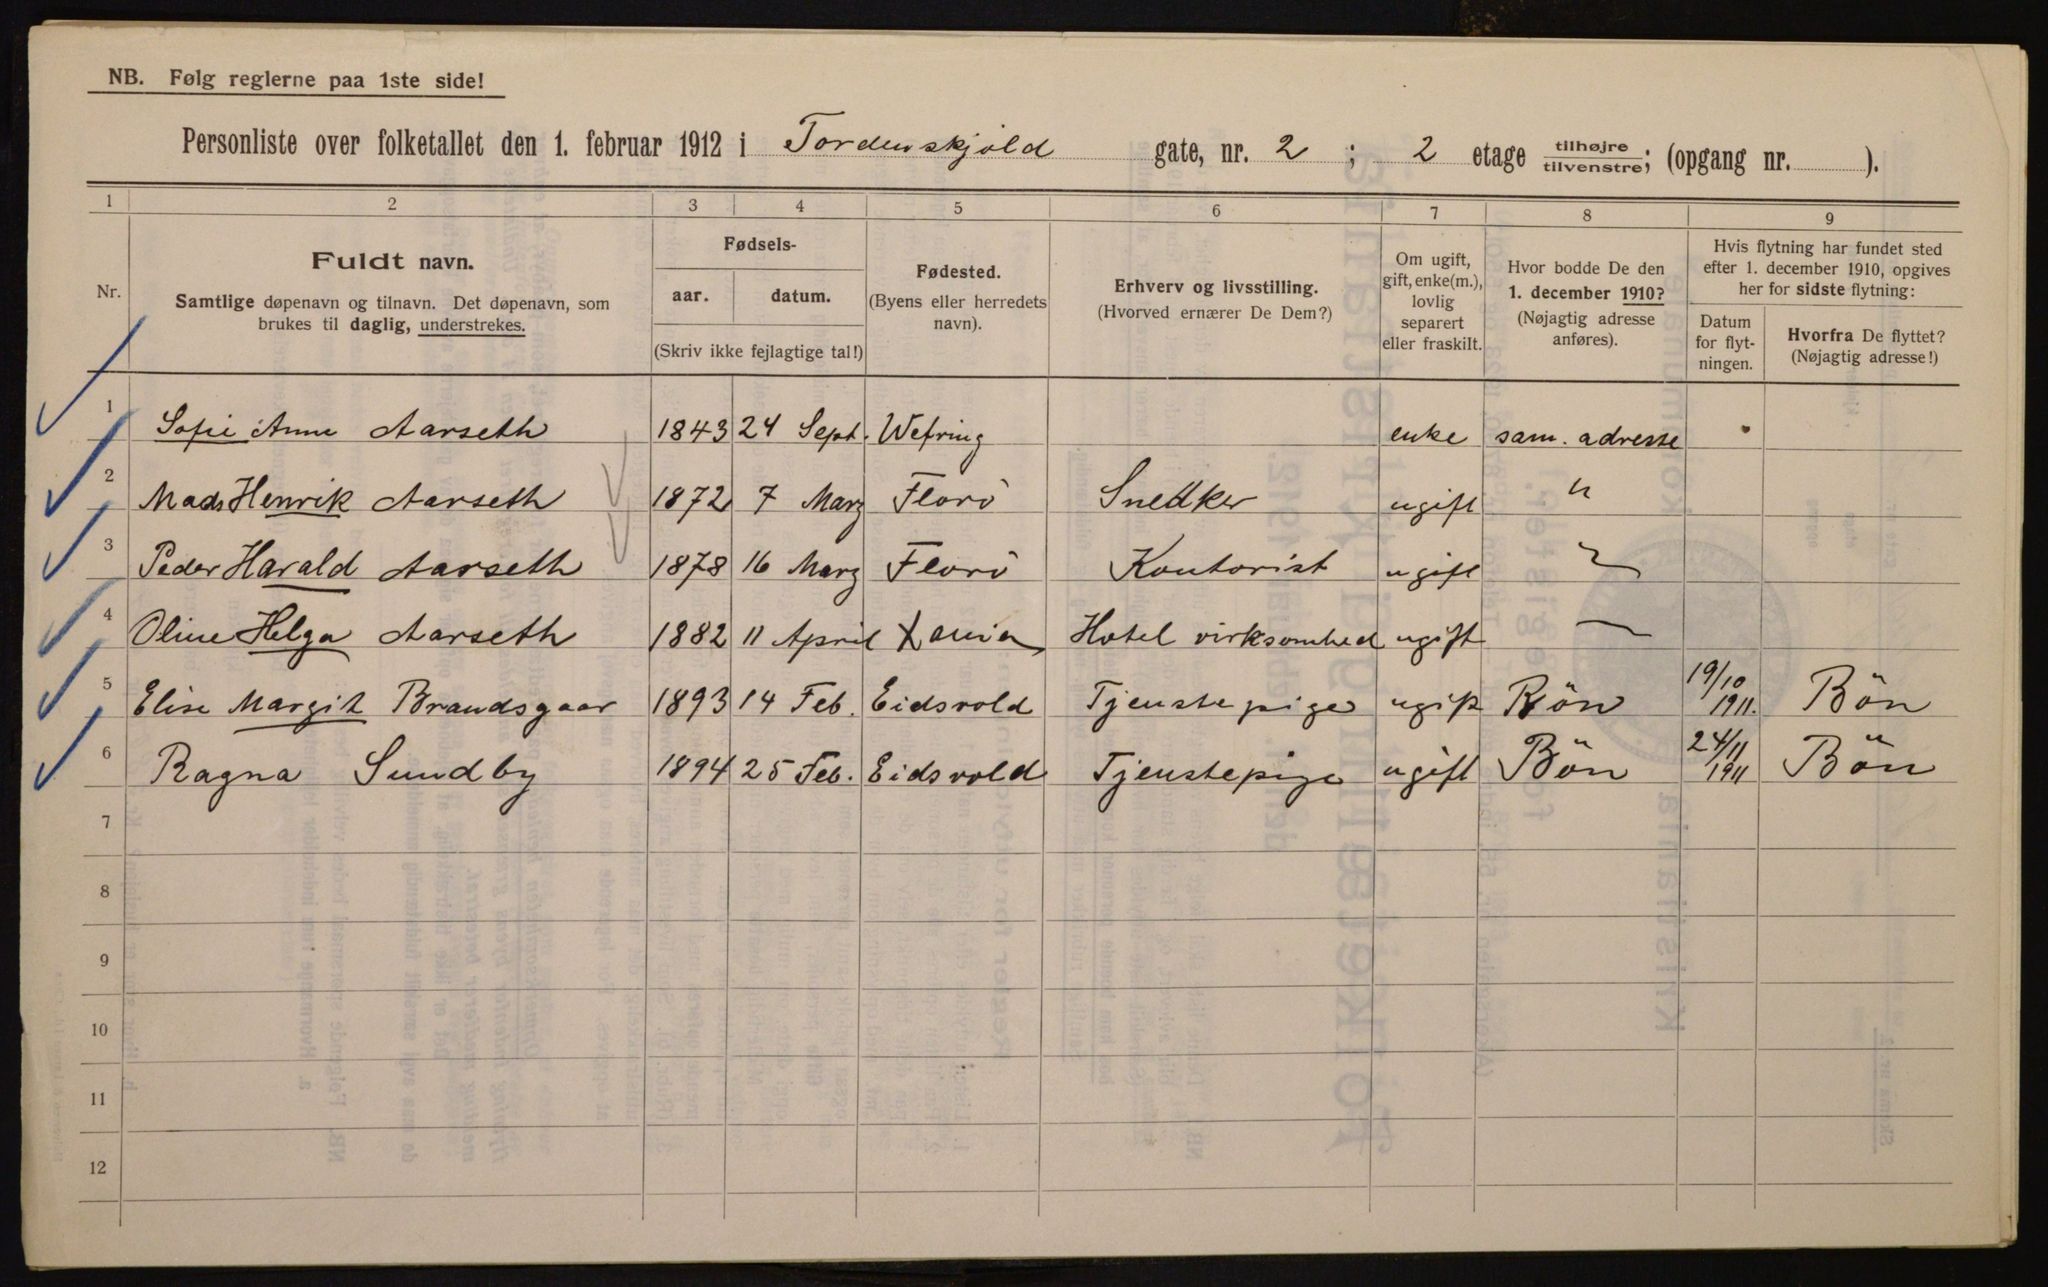 NB. Følg reglerne paa 1ste side!
Personliste over folketallet den 1. februar 1912 i Tordenskjold gate, nr. 2 ; 2 etage tilhøjre/tilvenstre; (opgang nr. ).
1 2 3 4 5 6 7 8 9
Nr.
Fuldt navn.
Samtlige døpenavn og tilnavn. Det døpenavn, som
brukes til daglig, understrekes.
Fødsels-
aar. datum.
(Skriv ikke fejlagtige tal!)
Fødested.
(Byens eller herredets
navn).
Erhverv og livsstilling.
(Hvorved ernærer De Dem?)
Om ugift,
gift, enke(m.),
lovlig
separert
eller fraskilt.
Hvor bodde De den
1. december 1910?
(Nøjagtig adresse
anføres).
Hvis flytning har fundet sted
efter 1. december 1910, opgives
her for sidste flytning:
Datum
for flyt-
ningen.
Hvorfra De flyttet?
(Nøjagtig adresse!)
1 Sofie Anne Aarseth 1843 24 Sept. Wefring enke sam. adresse
2 Mads Henrik Aarseth 1872 7 Marz Florö Snedker ugift "
3 Peder Harald Aarseth 1878 16 Marz Florö Kontorist ugift
4 Oline Helga Aarseth 1882 11 April Xania Hotel virksomhed ugift
5 Elise Margit Brandsgaar 1893 14 Feb. Eidsvold Tjenstepige ugift Bön 19/10 1911. Bön
6 Ragna Sundby 1894 25 Feb. Eidsvold Tjenstepige ugift Bön 24/11 1911 Bön
7
8
9
10
11
12